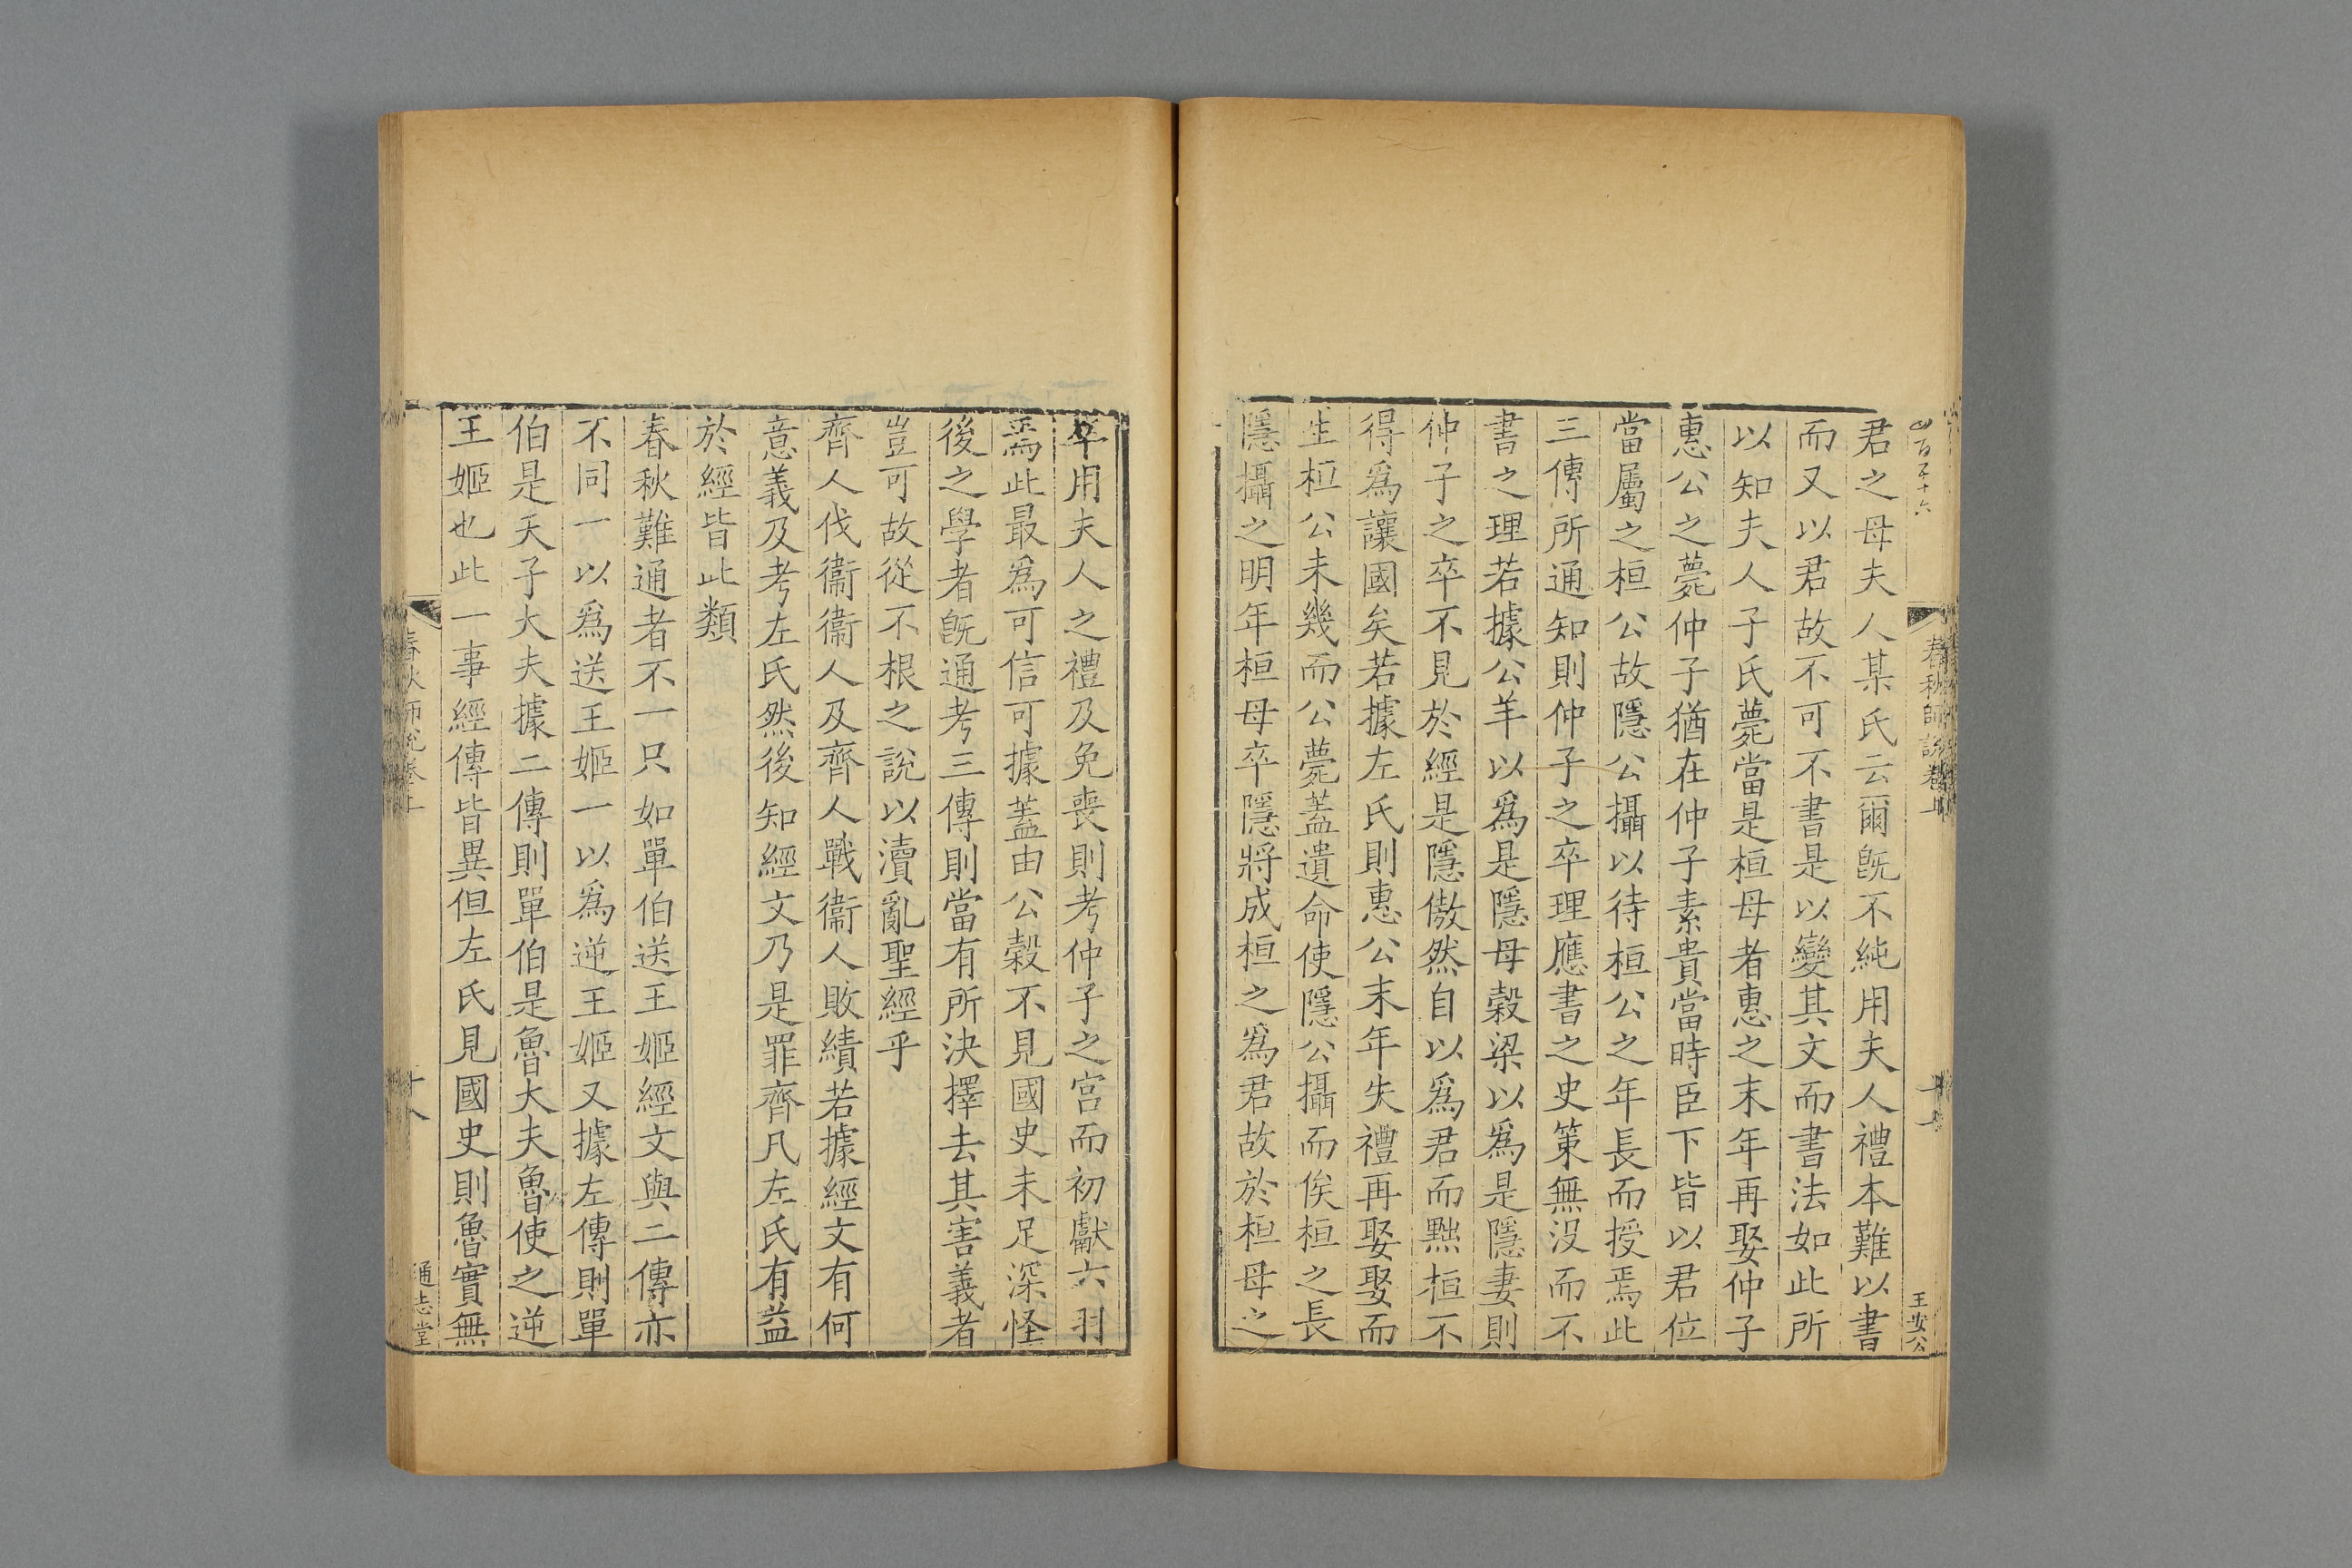 君之母夫人某氏云爾旣不純用夫人禮本難以書
而又以君故不可不書是以變其文而書法如此所
以知夫人子氏薨當是桓母者惠之末年再娶仲子
惠公之薨仲子猶在仲子素貴當時臣下皆以君位
當屬之桓公故隱公攝以待桓公之年長而授焉此
三傳所通知則仲子之卒理應書之史策無没而不
書之理若據公羊以爲是隱母穀梁以爲是隱妻則
仲子之卒不見於經是隱傲然自以爲君而黜桓不
得爲讓國矣若據左氏則惠公末年失禮再娶娶而
生桓公未幾而公薨蓋遺命使隱公攝而俟桓之長
隱攝之明年桓母卒隱將成桓之爲君故於桓母之
卒用夫人之禮及免喪則考仲子之宮而初獻六羽
焉此最爲可信可據蓋由公穀不見國史未足深怪
後之學者旣通考三傳則當有所決擇去其害義者
豈可故從不根之說以瀆亂聖經乎
齊人伐衞衞人及齊人戰衞人敗績若據經文有何
意義及考左氏然後知經文乃是罪齊凡左氏有益
於經皆此類
春秋難通者不一只如單伯送王姬經文與二傳亦
不同一以爲送王姬一以爲逆王姬又據左傳則單
伯是天子大夫據二傳則單伯是魯大夫魯使之逆
王姬也此一事經傳皆異但左氏見國史則魯實無
春秋師說卷上
十八
通志堂
春秋師說卷上
王安公